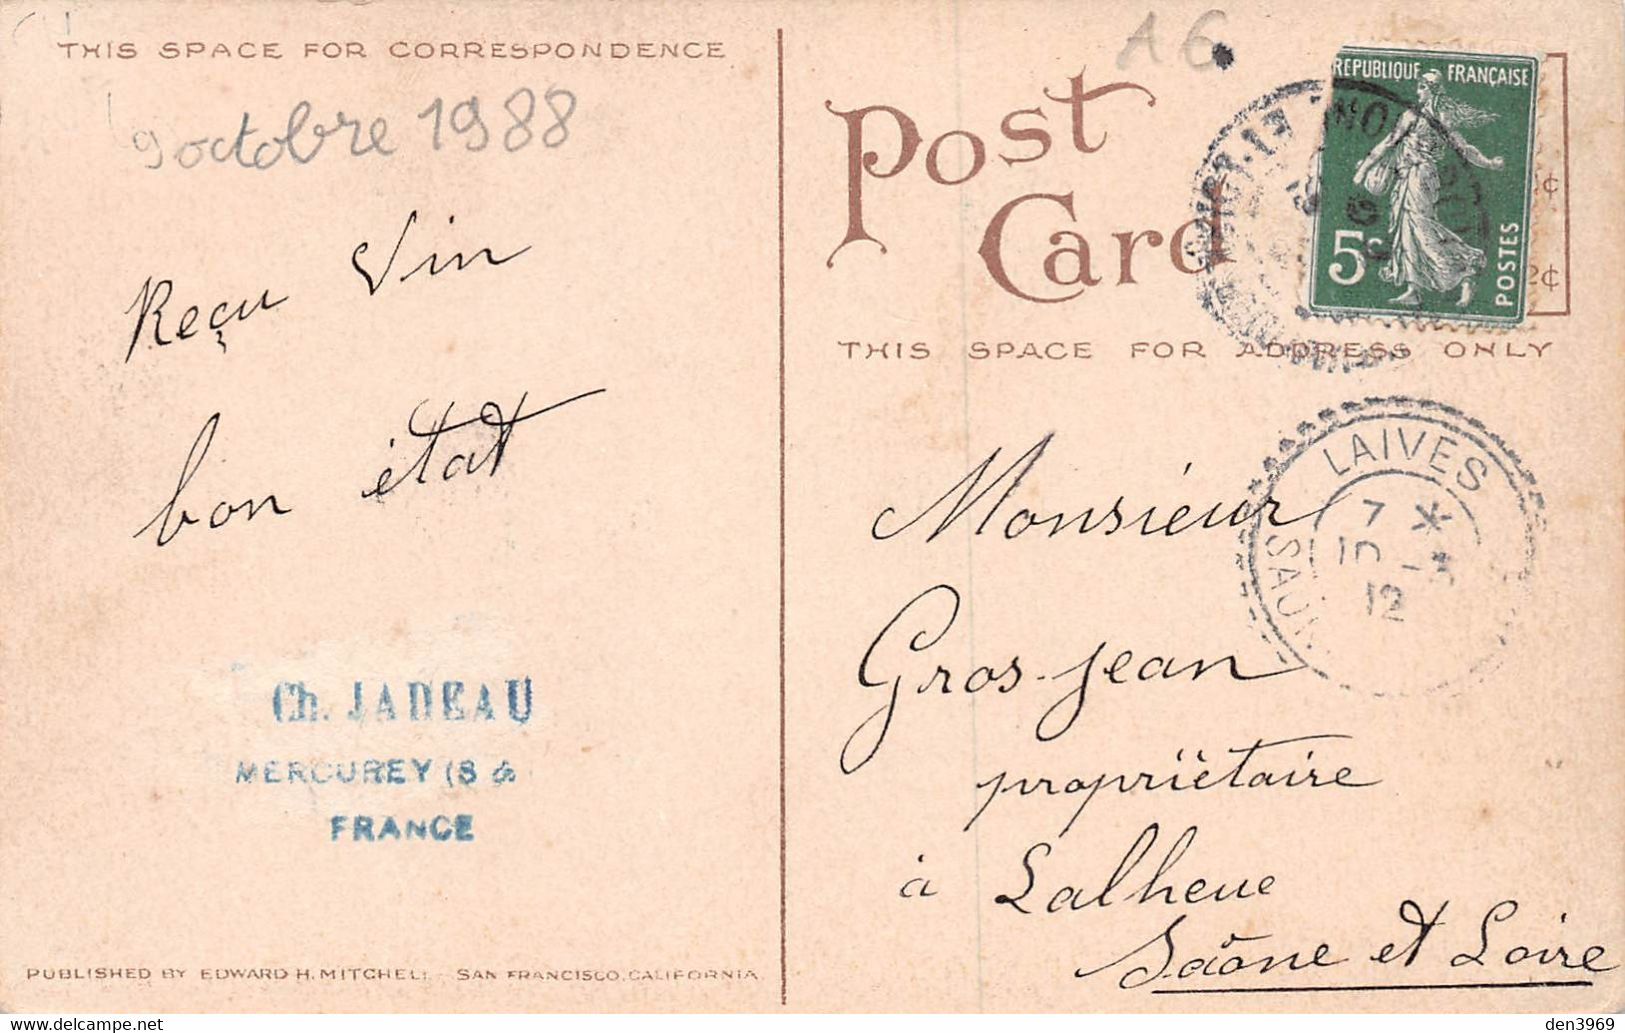 THIS SPACE FOR CORRESPONDENCE
9 octobre 1988
Reçu Vin
bon état
Ch. JADEAU
MERCUREY (S &
FRANCE
PUBLISHED BY EDWARD H. MITCHELL SAN FRANCISCO, CALIFORNIA
A6
Post
Card
REPUBLIQUE FRANÇAISE
5c
POSTES
2¢
THIS SPACE FOR ADDRESS ONLY
LAIVES
7 *
10 -3
12
SAÔN
Monsieur
Gros-Jean
propriètaire
à Lalheue
Saône et Loire
den3969